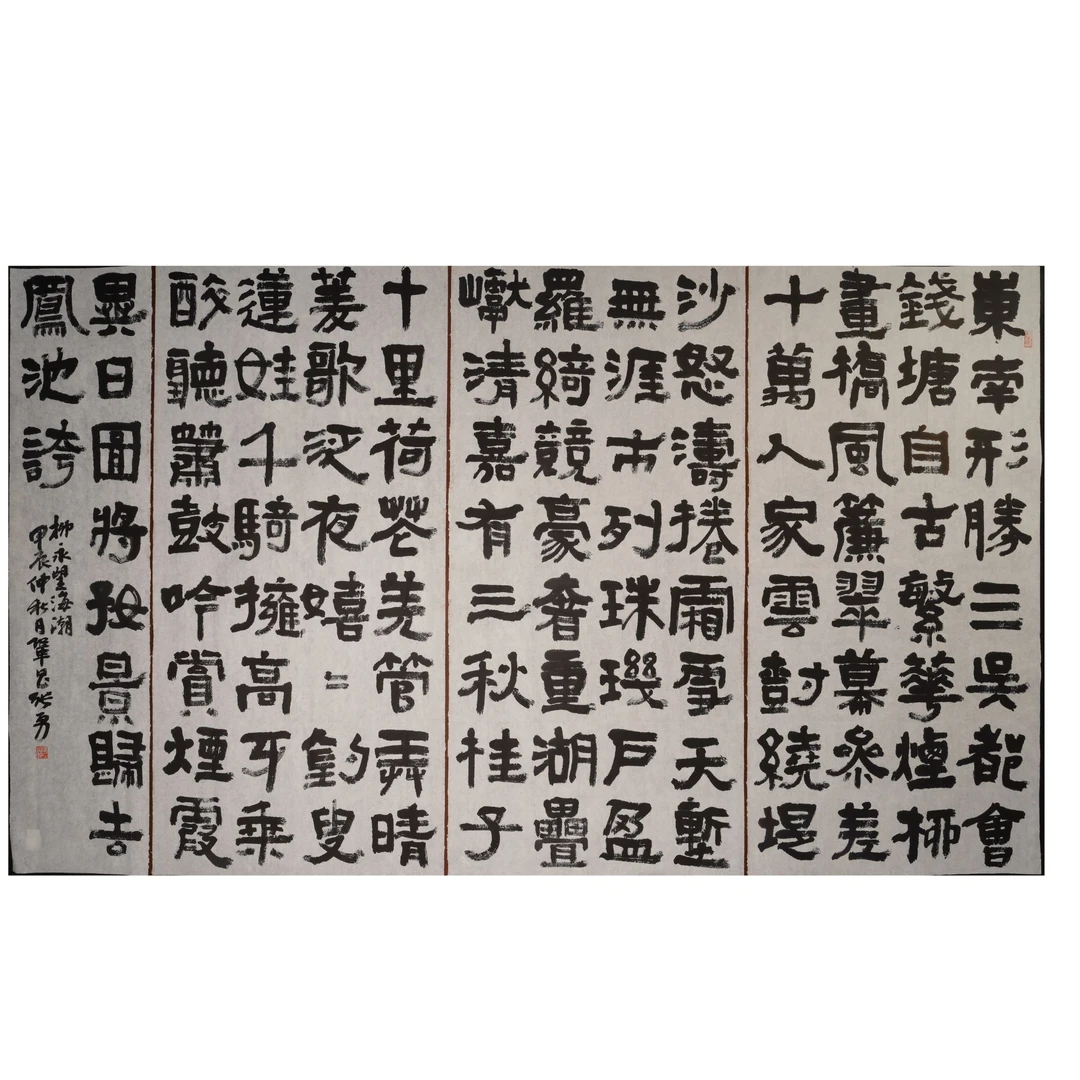 東南形勝三吳都會
錢塘自古繁華煙柳
畫橋風簾翠幕參差
十萬人家雲樹繞堤
沙怒濤捲霜雪天塹
無涯市列珠璣戶盈
羅綺競豪奢重湖疊
巘清嘉有三秋桂子
十里荷花羌管弄晴
菱歌泛夜嬉=釣叟
蓮娃千騎擁高牙乘
醉聽簫鼓吟賞煙霞
異日圖將好景歸去
鳳池誇
柳永望海潮
甲辰仲秋月鞏邑张勇